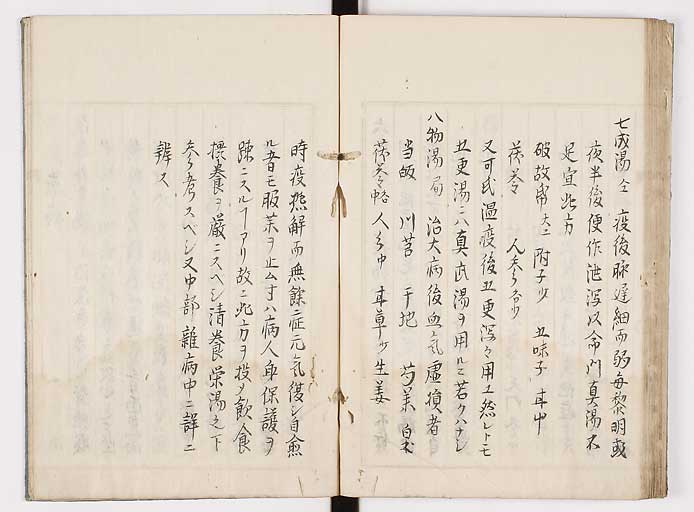 七成湯 仝 疫後脈遅細而弱毎黎明或
夜半後便作泄瀉以命門真陽不
足宜此方
破故帋大二 附子少 五味子 甘中
茯苓 人参各少
又可氏温疫後五更瀉ニ用ユ然レトモ
五更湯ニハ真武湯ヲ用ルニ若クハナシ
八物湯 局 治大病後血気虚損者
当皈 川芎 干地 芍薬 白朮
茯苓 人参中 甘草少 生姜
時疫熱解而無餘症元気復シ自愈
ル者モ服薬ヲ止ム寸ハ病人身保護ヲ
踈ニスルアリ故ニ此方ヲ投メ飲食
摂養ヲ厳ニスヘシ清養栄湯之下
参考スヘシ又中部雑病中ニ詳ニ
辨ス